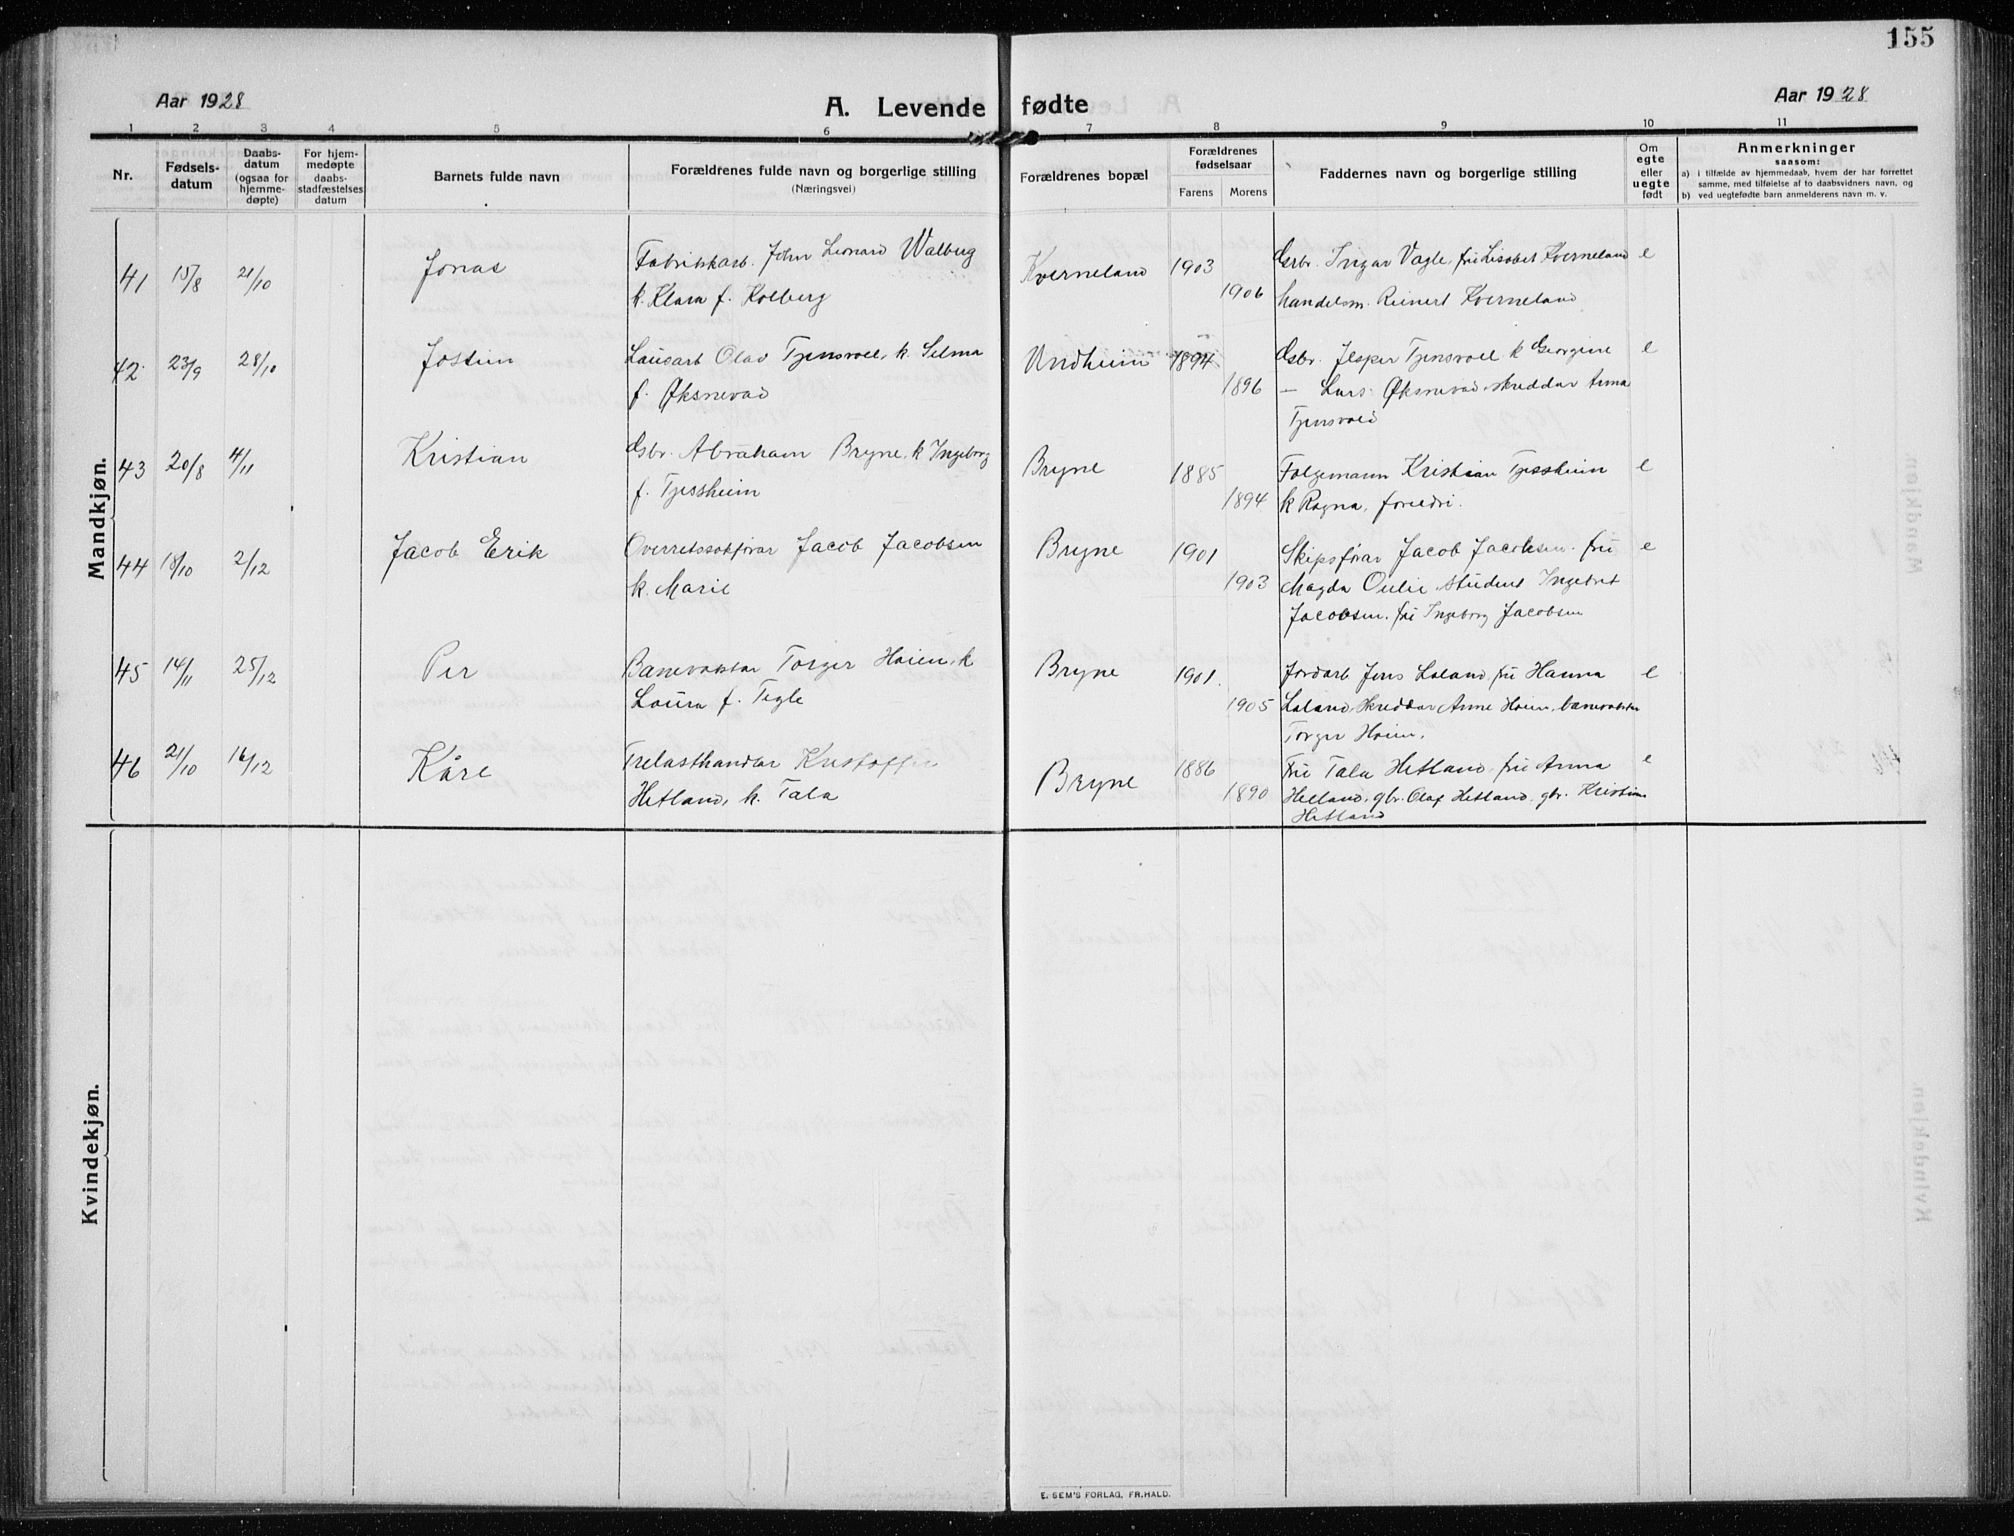 155
Aar 1928
A. Levende fødte
Aar 1928
1 2 3 4 5 6 7 8 9 10 11
Nr.
Fødsels-
datum
Daabs-
datum
(ogsaa for
hjemme-
døpte)
For hjem-
medøpte
daabs-
stadfæstelses
datum
Barnets fulde navn
Forældrenes fulde navn og borgerlige stilling
(Næringsvei)
Forældrenes bopæl
Forældrenes
fødselsaar
Farens Morens
Faddernes navn og borgerlige stilling
Om
egte
eller
uegte
født
Anmerkninger
saasom:
a) i tilfælde av hjemmedaab, hvem der har forrettet
samme, med tilføielse af to daabsvidners navn, og
b) ved uegtefødte barn anmelderens navn m. v.
Mandkjøn.
41 15/8 21/10 Jonas
Fabrikkarb. John Leonard Walberg
k. Klara f. Kolberg
Kverneland 1903
1906
Gsbr. Ingar Vagle, fru Lisabet Kverneland
handelsm. Reinert Kverneland
e
42 23/9 28/10 Jostein
Lausarb Olav Tjensvoll, k. Selma
f. Øksnevad
Undheim 1894
1896
Gsbr. Jesper Tjensvoll k Georgine
— Lars Øksnevad, skreddar Anna
Tjensvold
e
43 20/8 4/11 Kristian
Gsbr. Abraham Bryne, k Ingeborg
f. Tjessheim
Bryne 1885
1894
Folgemann Kristian Tjessheim
k Ragna, foreldri.
e
44 18/10 2/12 Jacob Erik
Overretssakførar Jacob Jacobsen
k. Marie
Bryne 1901
1903
Skipsførar Jacob Jacobsen. fru
Magda Oulie, student Ingebret
Jacobsen. fru Ingeborg Jacobsen
e
45 14/11 25/12 Per
Banevaktar Torger Høien, k
Laura f. Tegle
Bryne 1901.
1905
Jordarb Jens Laland, fru Hanna
Laland, skreddar Arne Høien, banevaktar
Torger Høien.
e
46 21/10 16/12 Kåre
Trelasthandlar Kristoffer
Hetland, k. Tala
Bryne 1886
1890
Fru Tala Hetland, fru Anna
Hetland, gbr. Olaf Hetland, gbr. Kristian
Hetland
e
Kvindekjøn.
E. SEM'S FORLAG, FR.HALD.